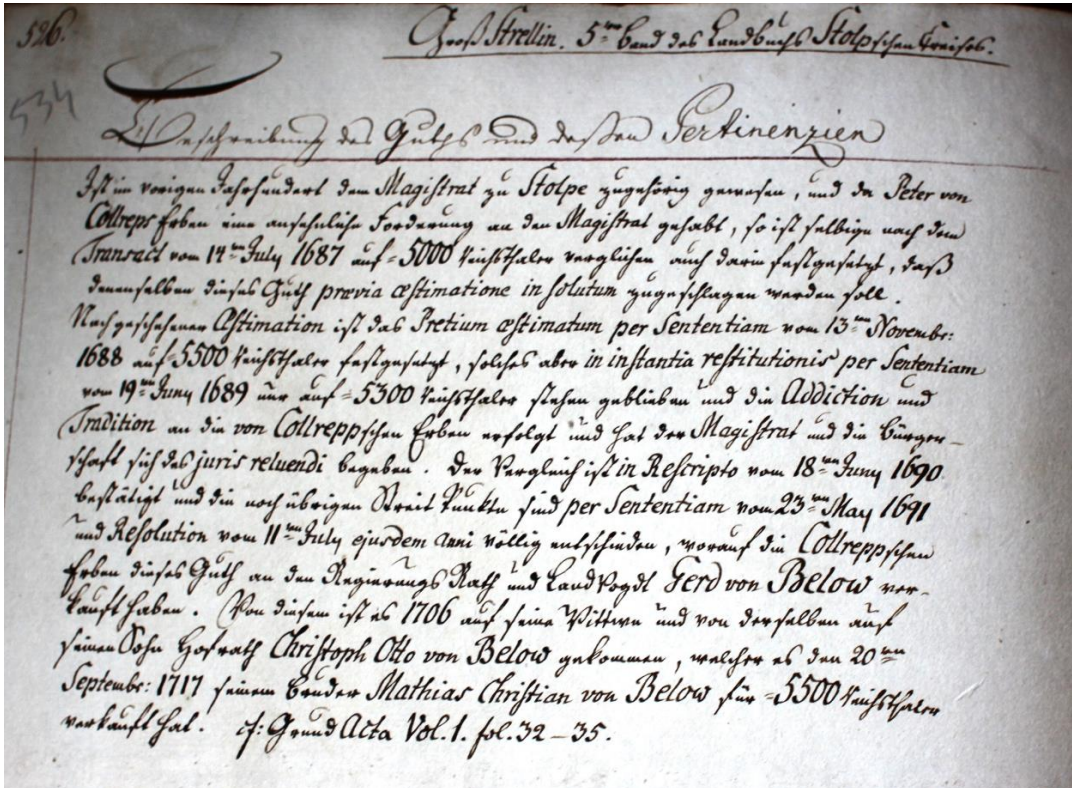 526.
Groß Strellin. 5ter Band des Landbuchs Stolpschen Creises.
534
Beschreibung des Guths und deßen Pertinenzien
Ist im vorigen Jahrhundert dem Magistrat zu Stolpe zugehörig gewesen, und da Peter von
Collreps Erben eine ansehnliche Forderung an den Magistrat gehabt, so ist selbige nach dem
Transact vom 14ten July 1687 auf = 5000 Reichsthaler verglichen auch darin festgesetzt, daß
denenselben dieses Guth prævia æstimatione in solutum zugeschlagen werden soll.
Nach geschehener Æstimation ist das Pretium æstimatum per Sententiam vom 13ten Novembr:
1688 auf = 5500 Reichsthaler festgesetzt, solches aber in instantia restitutionis per Sententiam
vom 19ten Juny 1689 nur auf = 5300 Reichsthaler stehen geblieben und die Addiction und
Tradition an die von Collreppschen Erben erfolgt und hat der Magistrat und die Bürger-
schaft sich des juris reluendi begeben. Der Vergleich ist in Rescripto vom 18ten Juny 1690
bestätigt und die noch übrigen Streit Punkte sind per Sententiam vom 23ten May 1691
und Resolution vom 11ten July ejusdem anni völlig entschieden, worauf die Collreppschen
Erben dieses Guth an den Regierungs Rath und LandVogdt Gerd von Below ver-
kauft haben. Von diesem ist es 1706 auf seine Wittwe und von derselben auf
seinen Sohn Hofrath Christoph Otto von Below gekommen, welcher es den 20ten
Septembr: 1717 seinem Bruder Mathias Christian von Below für = 5500 Reichsthaler
verkauft hat. cf: Grund Acta Vol. 1. fol. 32 – 35.